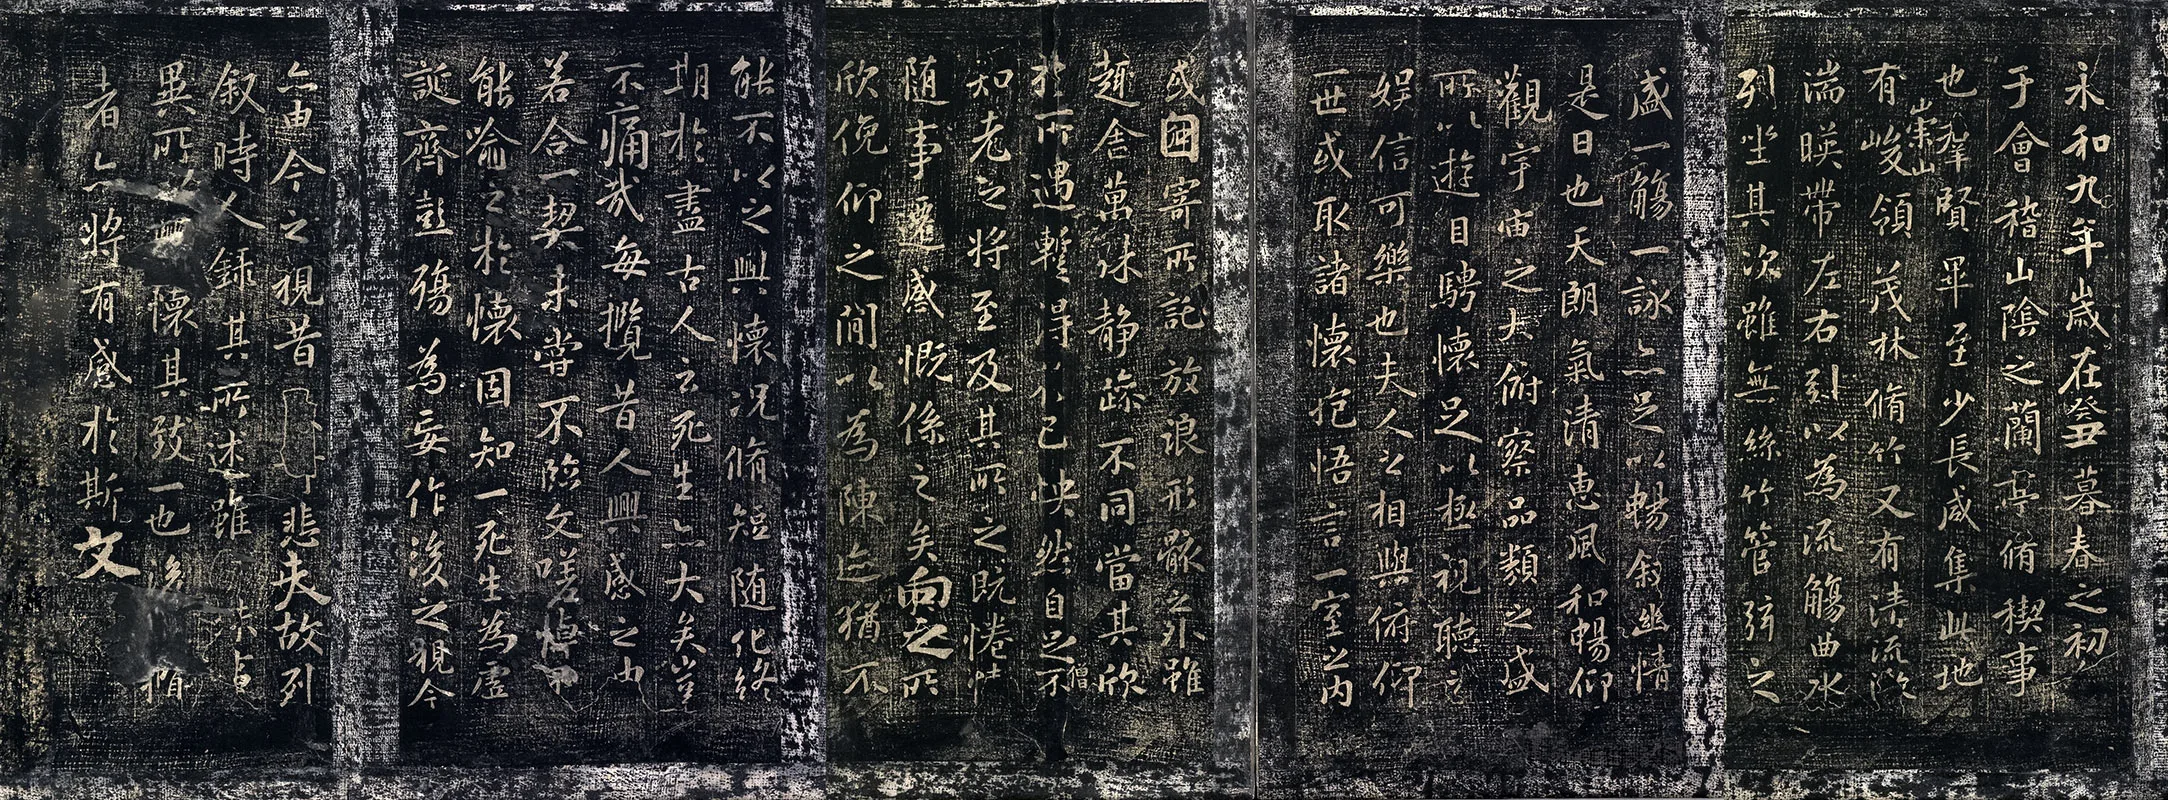 永和九年歲在癸丑暮春之初
于會稽山陰之蘭亭脩稧事
也羣賢畢至少長咸集此地
有崇山峻領茂林脩竹又有清流激
湍暎帶左右引以為流觴曲水
列坐其次雖無絲竹管弦之
盛一觴一詠亦足以暢敘幽情
是日也天朗氣清惠風和暢仰
觀宇宙之大俯察品類之盛
所以遊目騁懷足以極視聽之
娛信可樂也夫人之相與俯仰
一世或取諸懷抱悟言一室之內
或因寄所託放浪形骸之外雖
趣舍萬殊靜躁不同當其欣
於所遇暫得於己怏然自足不
僧
知老之將至及其所之既惓情
隨事遷感慨係之矣向之所
欣俛仰之閒以為陳迹猶不
能不以之興懷況脩短隨化終
期於盡古人云死生亦大矣豈
不痛哉每攬昔人興感之由
若合一契未嘗不臨文嗟悼不
能喻之於懷固知一死生為虛
誕齊彭殤為妄作後之視今
亦由今之視昔悲夫故列
敘時人錄其所述雖
異所以興懷其致一也後
者亦將有感於斯文